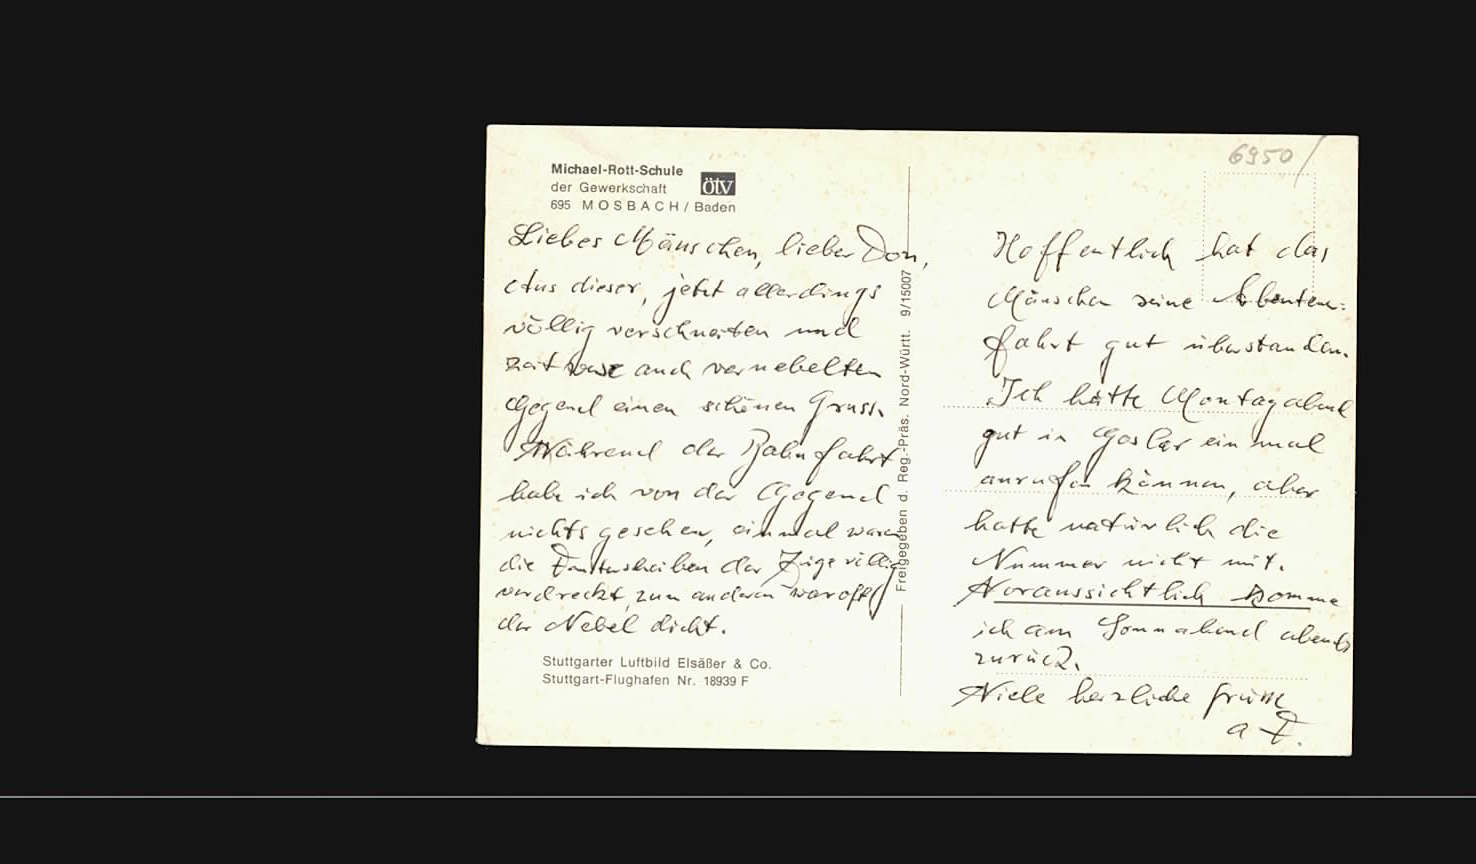 Michael-Rott-Schule
der Gewerkschaft ötv
695 MOSBACH / Baden
Liebes Mäuschen, lieber Don,
Aus dieser, jetzt allerdings
völlig verschneiten und
zeitweise auch vernebelten
Gegend einen schönen Gruss.
Während der Bahnfahrt
habe ich von der Gegend
nichts gesehen, einmal waren
die Fensterscheiben der Züge völlig
verdreckt, zum anderen war oft
der Nebel dicht.
Stuttgarter Luftbild Elsäßer & Co.
Stuttgart-Flughafen Nr. 18939 F
Freigegeben d. Reg.-Präs. Nord-Württ. 9/15007
6950/
Hoffentlich hat das
Mäuschen seine Abenteuer-
fahrt gut überstanden.
Ich hätte Montagabend
gut in Goslar einmal
anrufen können, aber
hatte natürlich die
Nummer nicht mit.
Voraussichtlich komme
ich am Sonnabend abends
zurück.
Viele herzliche Grüsse